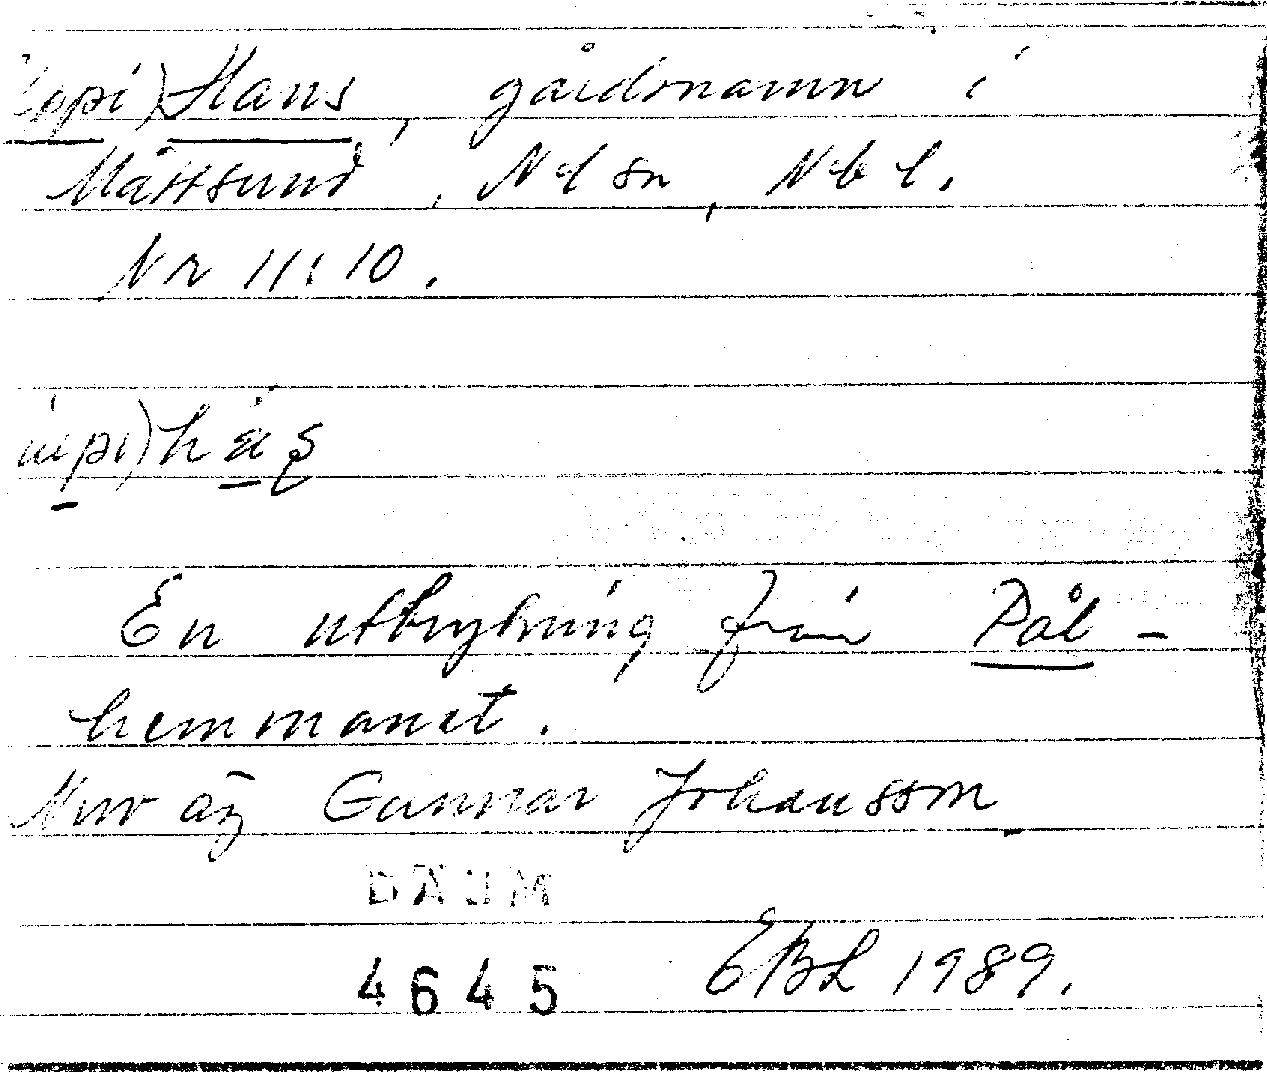 Hans, gårdsnamn i
Måttsund, Nl sn, Nb l.
Nr 11:10.
En utbrytning från Pål-
hemmanet.
Nuv äg Gunnar Johansson
DAUM
4645 EBL 1989.